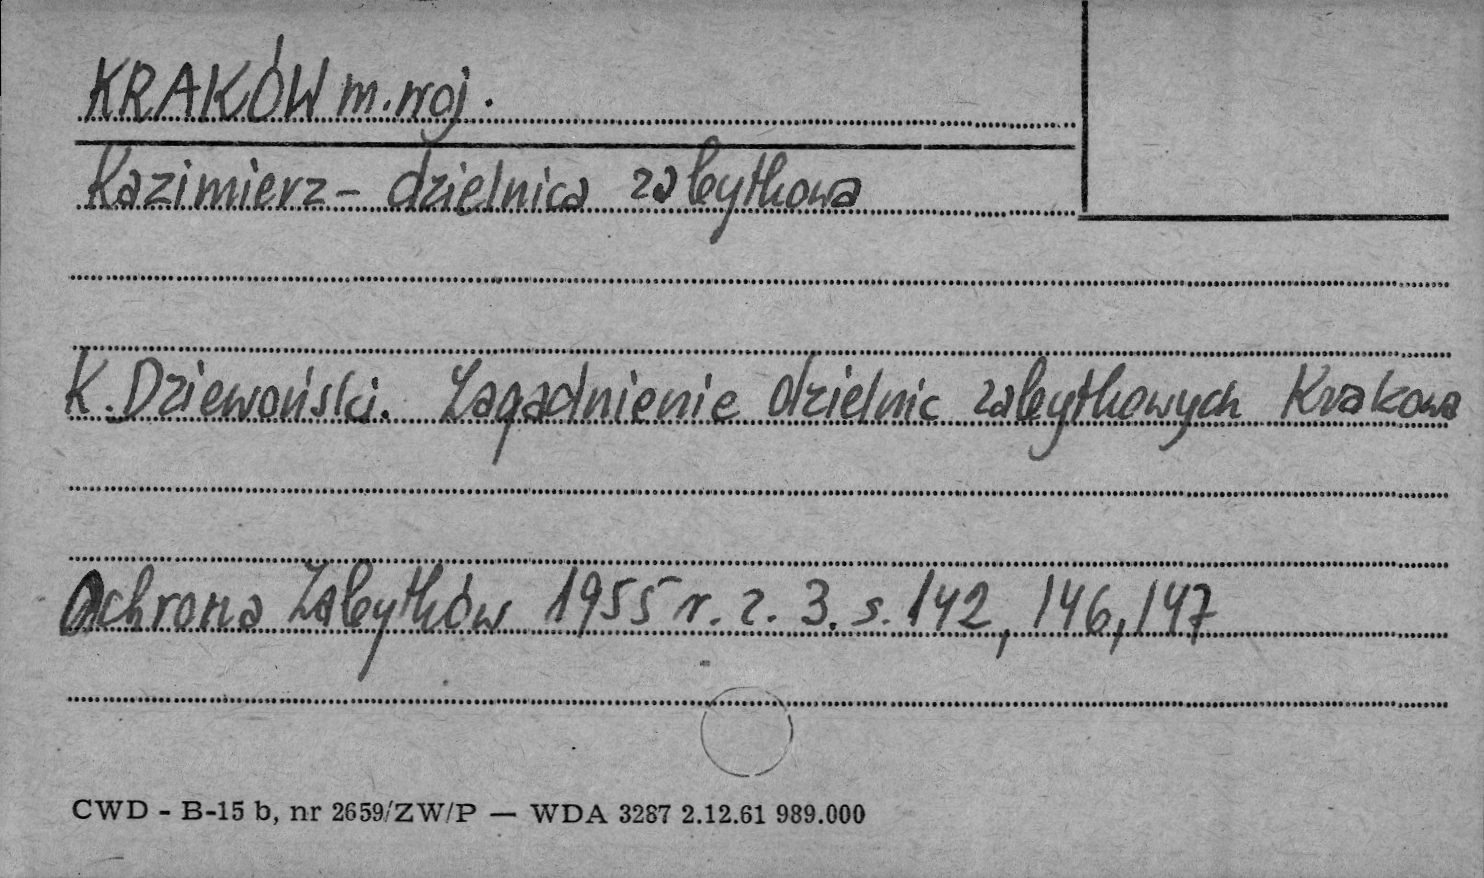 KRAKÓW m. woj.
Kazimierz – dzielnica zabytkowa
K. Dziewoński. Zagadnienie dzielnic zabytkowych Krakowa
Ochrona Zabytków 1955 r. z. 3. s. 142, 146, 147
CWD - B-15 b, nr 2659/ZW/P — WDA 3287 2.12.61 989.000